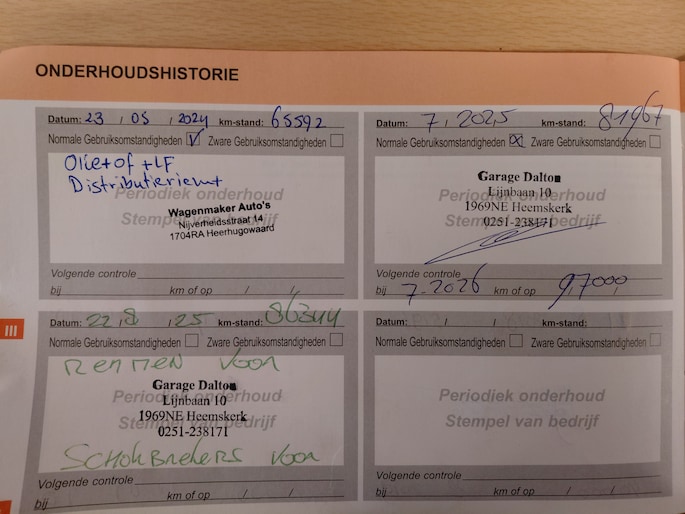 ONDERHOUDSHISTORIE
Datum: 23 / 05 / 2024 km-stand: 65592
Normale Gebruiksomstandigheden V Zware Gebruiksomstandigheden
Olie + of + LF
Distributieriemt
Periodiek onderhoud
Stempel van bedrijf
Wagenmaker Auto's
Nijverheidsstraat 14
1704RA Heerhugowaard
Volgende controle
bij km of op / /
Datum: 7, 2025 km-stand: 81967
Normale Gebruiksomstandigheden X Zware Gebruiksomstandigheden
Periodiek onderhoud
Stempel van bedrijf
Garage Dalton
Lijnbaan 10
1969NE Heemskerk
0251-238171
Volgende controle
bij 7-2026 km of op 97000 / /
III
Datum: 22 / 8 / 25 km-stand: 86344
Normale Gebruiksomstandigheden Zware Gebruiksomstandigheden
REMMEN VOOR
Periodiek onderhoud
Stempel van bedrijf
Garage Dalton
Lijnbaan 10
1969NE Heemskerk
0251-238171
SCHOKBREKERS VOOR
Volgende controle
bij km of op / /
Datum: / / km-stand:
Normale Gebruiksomstandigheden Zware Gebruiksomstandigheden
Periodiek onderhoud
Stempel van bedrijf
Volgende controle
bij km of op / /